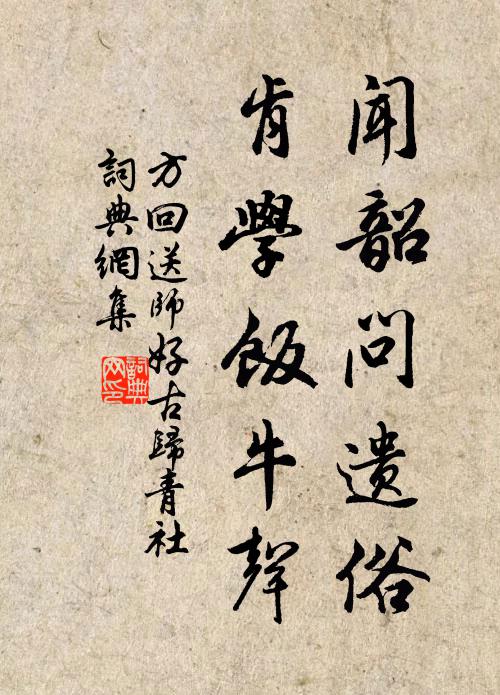 聞韶問遺俗
肯學飯牛聲
方回送師好古歸青社
詞典網集
詞典網印